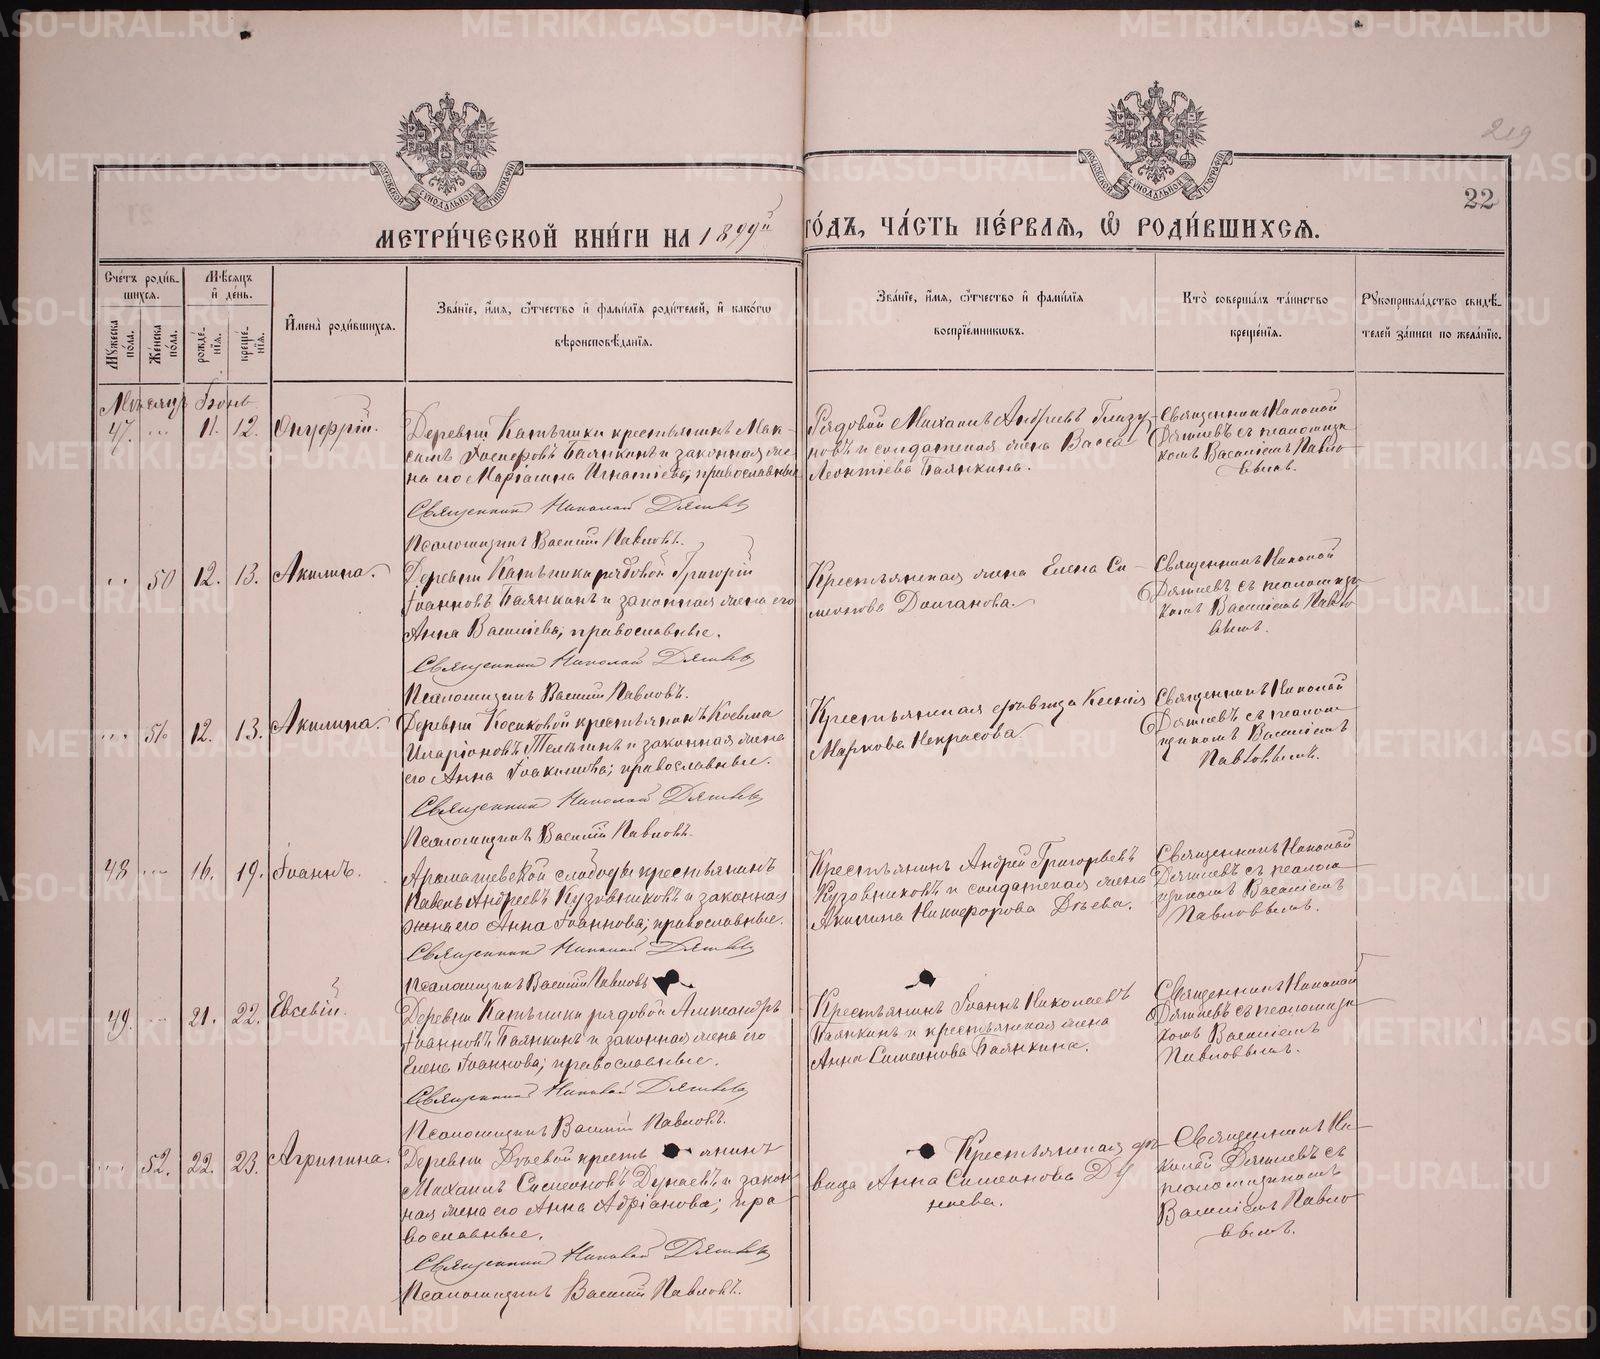 METRIKI.GASO-URAL.RU
219
22
МОСКОВСКОЙ СѴНОДАЛЬНОЙ ТИПОГРАФІИ
МОСКОВСКОЙ СѴНОДАЛЬНОЙ ТИПОГРАФІИ
МЕТРИ́ЧЕСКОЙ КНИ́ГИ НА 1899й ГО́ДЪ, ЧА́СТЬ ПЕ́РВАЯ, Ѡ҆ РОДИ́ВШИХСЯ.
Сче́тъ роди́в-
шихся.
Мѣ́сяцъ
и҆ де́нь.
Му́жеска по́ла.
Же́нска по́ла.
рожде́-нїя.
креще́-нїя.
И҆мена̀ роди́вшихся.
Зва́нїе, и҆́мя, ѻ҆́тчество и҆ фами́лїя роди́телей, и҆ како́гѡ
вѣроисповѣ́данїя.
Зва́нїе, и҆́мя, ѻ҆́тчество и҆ фами́лїя
воспрїе́мникѡвъ.
Кто̀ соверша́лъ та́инство
креще́нїя.
Рꙋкоприкла́дство свидѣ́-
телей за́писи по жела́нїю.
Мѣсяцъ Іюнь
47. ... 11. 12. Онуфрій.
Деревни Катышки крестьянинъ Мак-
симъ Іосифовъ Баянкинъ и законная же-
на его Маріамна Игнатіева; православные
Священникъ Николай Дягилевъ
Псаломщикъ Василій Павловъ.
Рядовой Михаилъ Андреевъ Глазу-
новъ и солдатская жена Васса
Леонтіева Баянкина.
Священникъ Николай
Дягилевъ съ псаломщи-
комъ Василіемъ Павло-
вымъ.
... 50 12. 13. Акилина.
Деревни Катышки рядовой Григорій
Іоанновъ Баянкинъ и законная жена его
Анна Василіева; православные.
Священникъ Николай Дягилевъ
Псаломщикъ Василій Павловъ.
Крестьянская жена Елена Си-
меонова Долганова.
Священникъ Николай
Дягилевъ съ псаломщи-
комъ Василіемъ Павло-
вымъ.
... 51 12. 13. Акилина.
Деревни Косиковой крестьянинъ Косьма
Иларіоновъ Телегинъ и законная жена
его Анна Іоакимова; православные.
Священникъ Николай Дягилевъ
Псаломщикъ Василій Павловъ.
Крестьянская дѣвица Ксенія
Маркова Некрасова
Священникъ Николай
Дягилевъ съ псалом-
щикомъ Василіемъ
Павловымъ.
48 ... 16. 19. Іоаннъ.
Арамашевской слободы крестьянинъ
Павелъ Андреевъ Кузовниковъ и законная
жена его Анна Іоаннова; православные.
Священникъ Николай Дягилевъ
Псаломщикъ Василій Павловъ
Крестьянинъ Андрей Григорьевъ
Кузовниковъ и солдатская жена
Акилина Никифорова Дѣева.
Священникъ Николай
Дягилевъ съ псалом-
щикомъ Василіемъ
Павловымъ.
49. ... 21. 22. Евсевій.
Деревни Катышки рядовой Александръ
Іоанновъ Баянкинъ и законная жена его
Елена Іоаннова; православные.
Священникъ Николай Дягилевъ
Псаломщикъ Василій Павловъ.
Крестьянинъ Іоаннъ Николаевъ
Баянкинъ и крестьянская жена
Анна Симеонова Баянкина.
Священникъ Николай
Дягилевъ съ псаломщи-
комъ Василіемъ
Павловымъ.
... 52. 22. 23. Агрипина.
Деревни Дѣевой кресть янинъ
Михаилъ Симеоновъ Дунаевъ и закон-
ная жена его Анна Адріанова; пра-
вославные.
Священникъ Николай Дягилевъ
Псаломщикъ Василій Павловъ.
Крестьянская дѣ-
вица Анна Симеонова Ду-
наева.
Священникъ Ни-
колай Дягилевъ съ
псаломщикомъ
Василіемъ Павло-
вымъ.